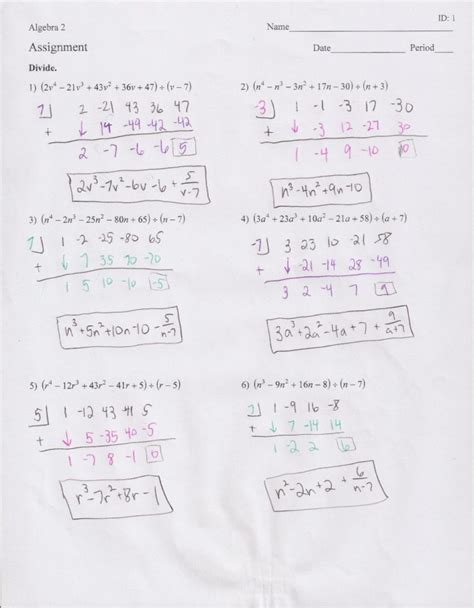 ID: 1
Algebra 2
Name
Assignment
Date Period
Divide.
1) (2v⁴ − 21v³ + 43v² + 36v + 47) ÷ (v − 7)
7 2 -21 43 36 47
+ ↓ 14 -49 -42 -42
2 -7 -6 -6 5
2v³-7v²-6v-6 + 5/v-7
2) (n⁴ − n³ − 3n² + 17n − 30) ÷ (n + 3)
-3 1 -1 -3 17 -30
+ ↓ -3 12 -27 30
1 -4 9 -10 0
n³-4n²+9n-10
3) (n⁴ − 2n³ − 25n² − 80n + 65) ÷ (n − 7)
7 1 -2 -25 -80 65
+ ↓ 7 35 70 -70
1 5 10 -10 -5
n³+5n²+10n-10 - 5/n-7
4) (3a⁴ + 23a³ + 10a² − 21a + 58) ÷ (a + 7)
-7 3 23 10 -21 58
+ ↓ -21 -14 28 -49
3 2 -4 7 9
3a³+2a²-4a+7 + 9/a+7
5) (r⁴ − 12r³ + 43r² − 41r + 5) ÷ (r − 5)
5 1 -12 43 -41 5
+ ↓ 5 -35 40 -5
1 -7 8 -1 0
r³-7r²+8r-1
6) (n³ − 9n² + 16n − 8) ÷ (n − 7)
7 1 -9 16 -8
+ ↓ 7 -14 14
1 -2 2 6
n²-2n+2 + 6/n-7